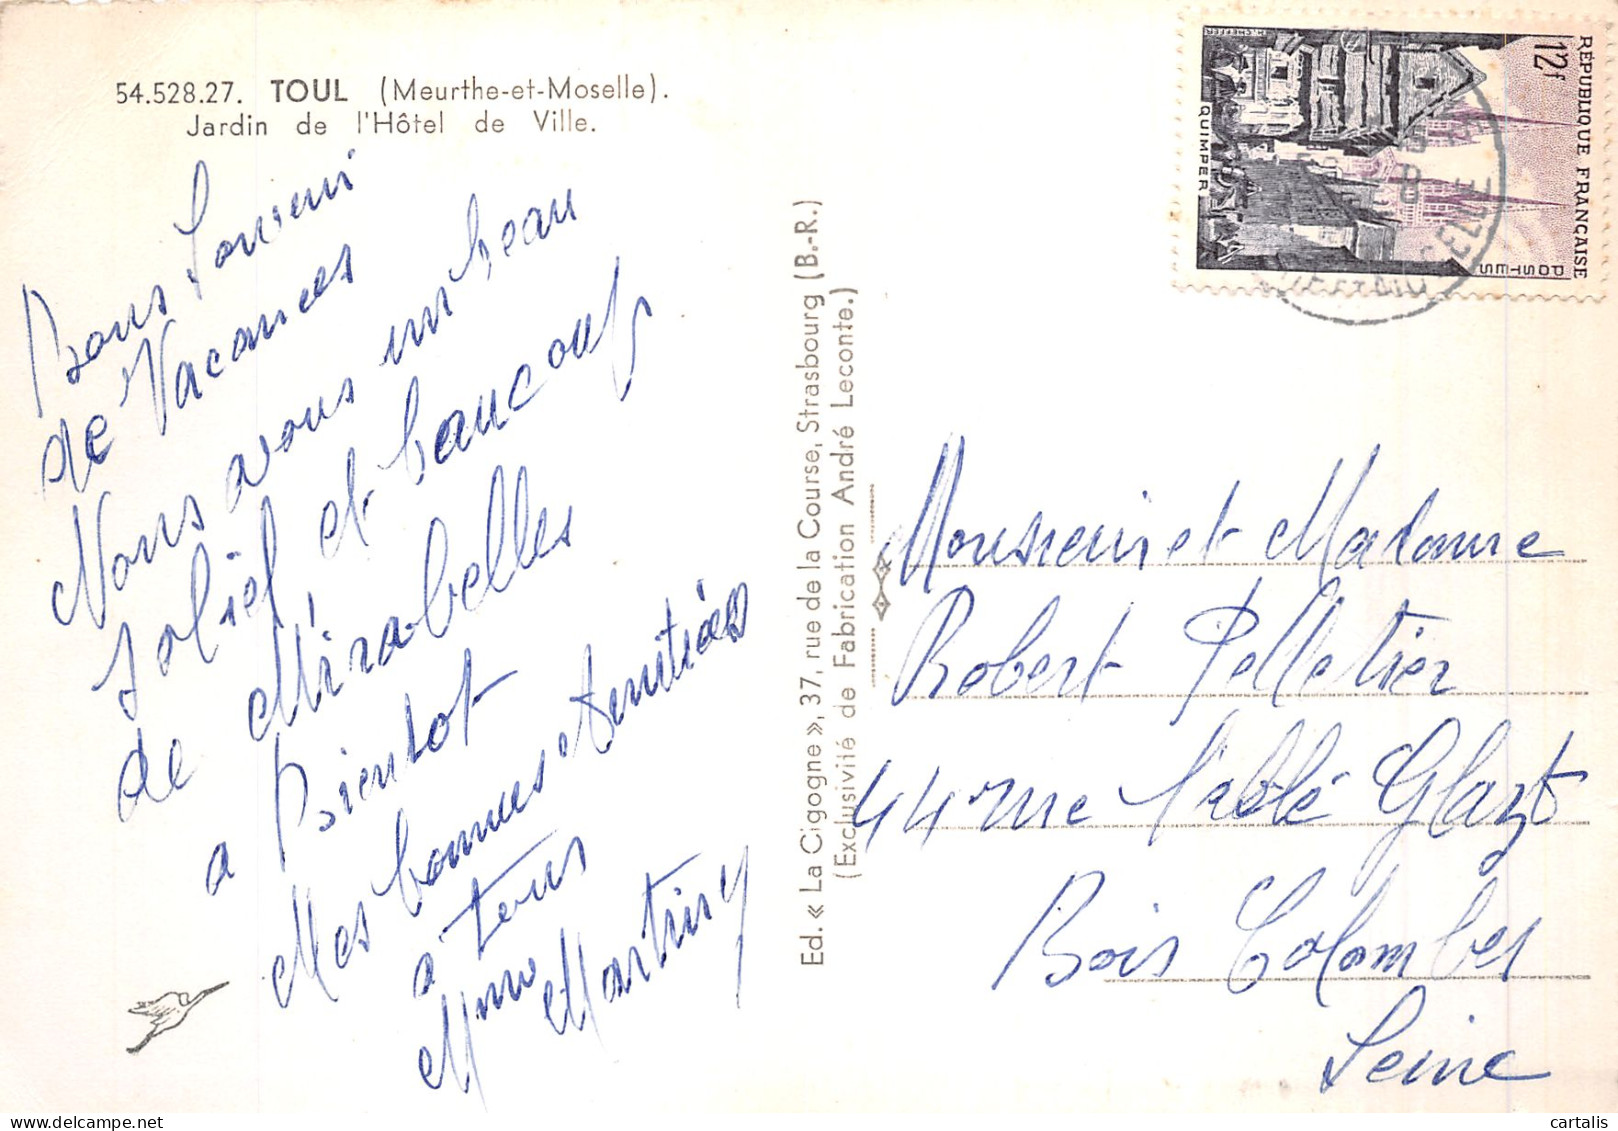 54.528.27. TOUL (Meurthe-et-Moselle).
Jardin de l'Hôtel de Ville.
Bons Souvenir
de Vacances
Nous avons un beau
Soliel et beaucoup
de Mirabelles
a Bientot
Mes bonnes Amitiées
a tous
Mme Martiny
Ed. « La Cigogne », 37, rue de la Course, Strasbourg (B.-R.)
(Exclusivité de Fabrication André Leconte.)
REPUBLIQUE FRANÇAISE
12f
POSTES
QUIMPER
Monsieur et Madame
Robert Pelletier
44 rue
Bois Colombes
Seine
cartalis